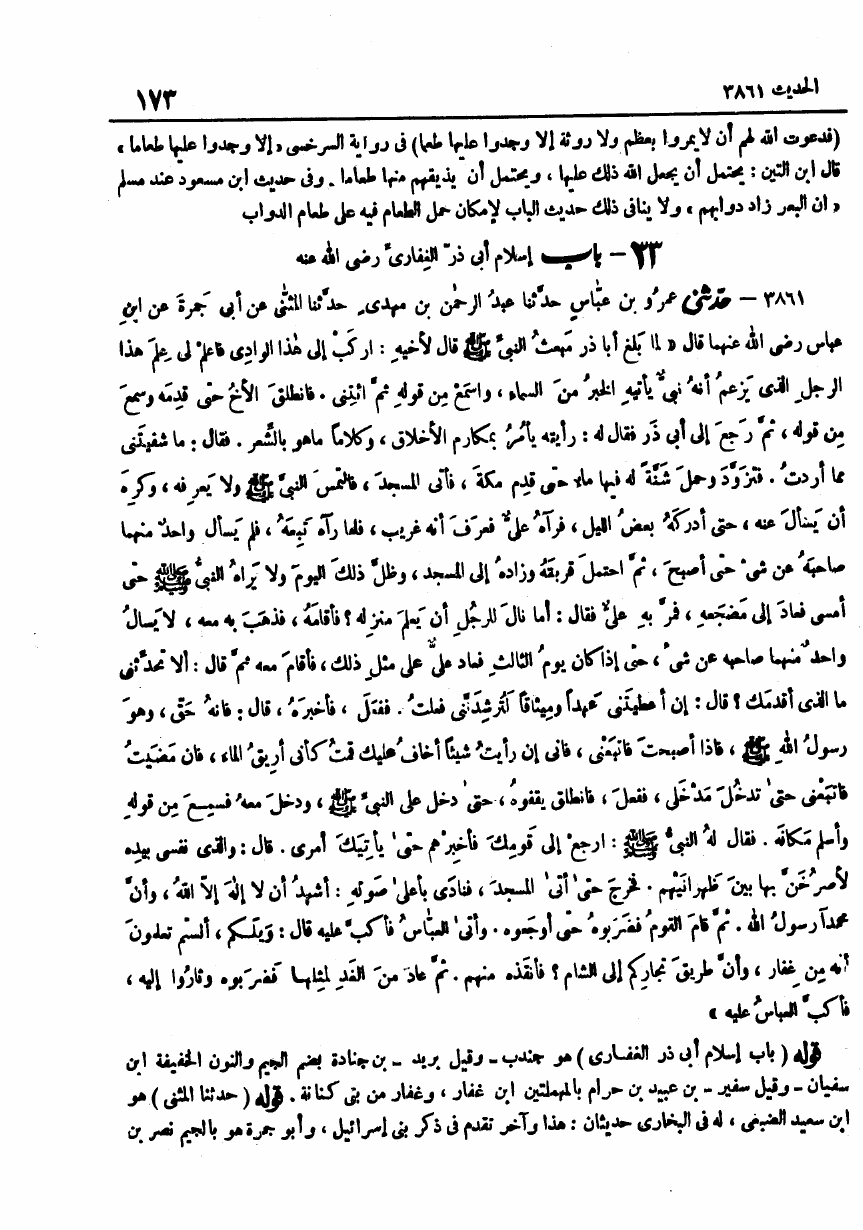 الحديث ٣٨٦١
١٧٣
(فدعوت الله لهم أن لا يمروا بعظم ولا روثة إلا وجدوا عليها طعما) فى رواية السرخسى « إلا وجدوا عليها طعاما ،
قال ابن التين : يحتمل أن يجعل الله ذلك عليها ، ويحتمل أن يذيقهم منها طعاما . وفى حديث ابن مسعود عند مسلم
« ان البعر زاد دوابهم ، ولا ينافى ذلك حديث الباب لإمكان حمل الطعام فيه على طعام الدواب
٣٣ - باب إسلام أبى ذرّ الغِفارىِّ رضى الله عنه
٣٨٦١ - حدّثنى عمرُو بن عبّاسٍ حدَّثنا عبدُ الرحمٰن بن مهدى حدَّثنا المثنَّى عن أبى جَمرةَ عن ابنِ
عباس رضى الله عنهما قال « لما بَلغ أبا ذر مَبعثُ النبىِّ ﷺ قال لأخيهِ : اركَبْ إلى هٰذا الوادِى فاعلمْ لى عِلمَ هذا
الرجلِ الذى يَزعمُ أنهُ نبىٌّ يأتيهِ الخبرُ منَ السماء ، واسمَعْ مِن قولهِ ثمَّ ائتِنى . فانطلقَ الأخُ حتّى قدِمَه وسمعَ
مِن قوله ، ثمَّ رَجعَ إلى أبى ذَر فقال له : رأيته يأمُرُ بمكارم الأخلاق ، وكلاماً ماهو بالشِّعر . فقال : ما شفيتَنى
مما أردتُ . فتزوَّدَ وحملَ شَنَّةً له فيها ماء حتّى قدِم مكةَ ، فأتى المسجدَ ، فالتمسَ النبىَّ ﷺ ولا يَعرِفه ، وكرِهَ
أن يَسألَ عنه ، حتى أدركَهُ بعضُ الليل ، فرآهُ علىٌّ فعرَفَ أنه غريب ، فلما رآه تَبِعَهُ ، فلم يَسأل واحدٌ منهما
صاحبَهُ عن شىءٍ حتّى أصبحَ ، ثمَّ احتملَ قربَتَهُ وزادهُ إلى المسجد ، وظلَّ ذلكَ اليومَ ولا يَراهُ النبىُّ ﷺ حتّى
أمسى فعادَ إلى مَضجَعهِ ، فمرَّ بهِ علىٌّ فقال : أما نالَ للرجُلِ أن يَعلمَ منزلِه ؟ فأقامَهُ ، فذهبَ به معه ، لا يَسألُ
واحدٌ منهما صاحبه عن شىءٍ ، حتّى إذا كان يومُ الثالثِ فعاد علىٌّ على مثلِ ذلك ، فأقامَ معه ثمَّ قال : ألا تحدِّثُنى
ما الذى أقدَمَك ؟ قال : إن أعطيتَنى عَهداً ومِيثاقاً لَتُرشِدَنَّى فعلتُ . ففعَلَ ، فأخبرَهُ ، قال : فانهُ حَقّ ، وهوَ
رسولُ اللهِ ﷺ ، فاذا أصبحتَ فاتبَعْنى ، فانى إن رأيتُ شيئاً أخافُ عليك قمتُ كأنى أُريقُ الماء ، فان مَضَيتُ
فاتبَعْنى حتىٰ تدخُلَ مَدْخَلى ، ففعلَ ، فانطلق يقفوهُ ، حتىٰ دخل على النبىِّ ﷺ ، ودخلَ معهُ فسمِعَ مِن قولهِ
وأسلم مَكانَه . فقال لهُ النبىُّ ﷺ : ارجعْ إلى قَومِكَ فأخبِرْهم حتّىٰ يأتِيَكَ أمرى . قال : والذى نفسى بيدِه
لأصرُخَنَّ بها بينَ ظَهرانَيْهم . فخرجَ حتىٰ أتىٰ المسجدَ ، فنادَى بأعلىٰ صَوتهِ : أشهدُ أن لا إلٰهَ إلاّ اللهُ ، وأنَّ
محمداً رسولُ الله . ثمَّ قامَ القومُ فضَرَبوهُ حتّى أوجَعوه . وأتىٰ العبّاسُ فأكبَّ عليه قال : وَيلَكم ، ألستم تعلمونَ
أنه مِن غِفار ، وأنَّ طريقَ تجارِكم إلى الشام ؟ فأنقذه منهم . ثمَّ عادَ منَ الغَدِ لمثلِها فضرَبوه وثارُوا إليه ،
فأكبَّ العباسُ عليه »
قوله ( باب إسلام أبى ذر الغفارى ) هو جندب - وقيل بريد - بن جنادة بضم الجيم والنون الخفيفة ابن
سفيان - وقيل سفير - بن عبيد بن حرام بالمهملتين ابن غفار ، وغفار من بنى كنانة . قوله ( حدثنا المثنى ) هو
ابن سعيد الضبعى ، له فى البخارى حديثان : هذا وآخر تقدم فى ذكر بنى إسرائيل ، وأبو جمرة هو بالجيم نصر بن